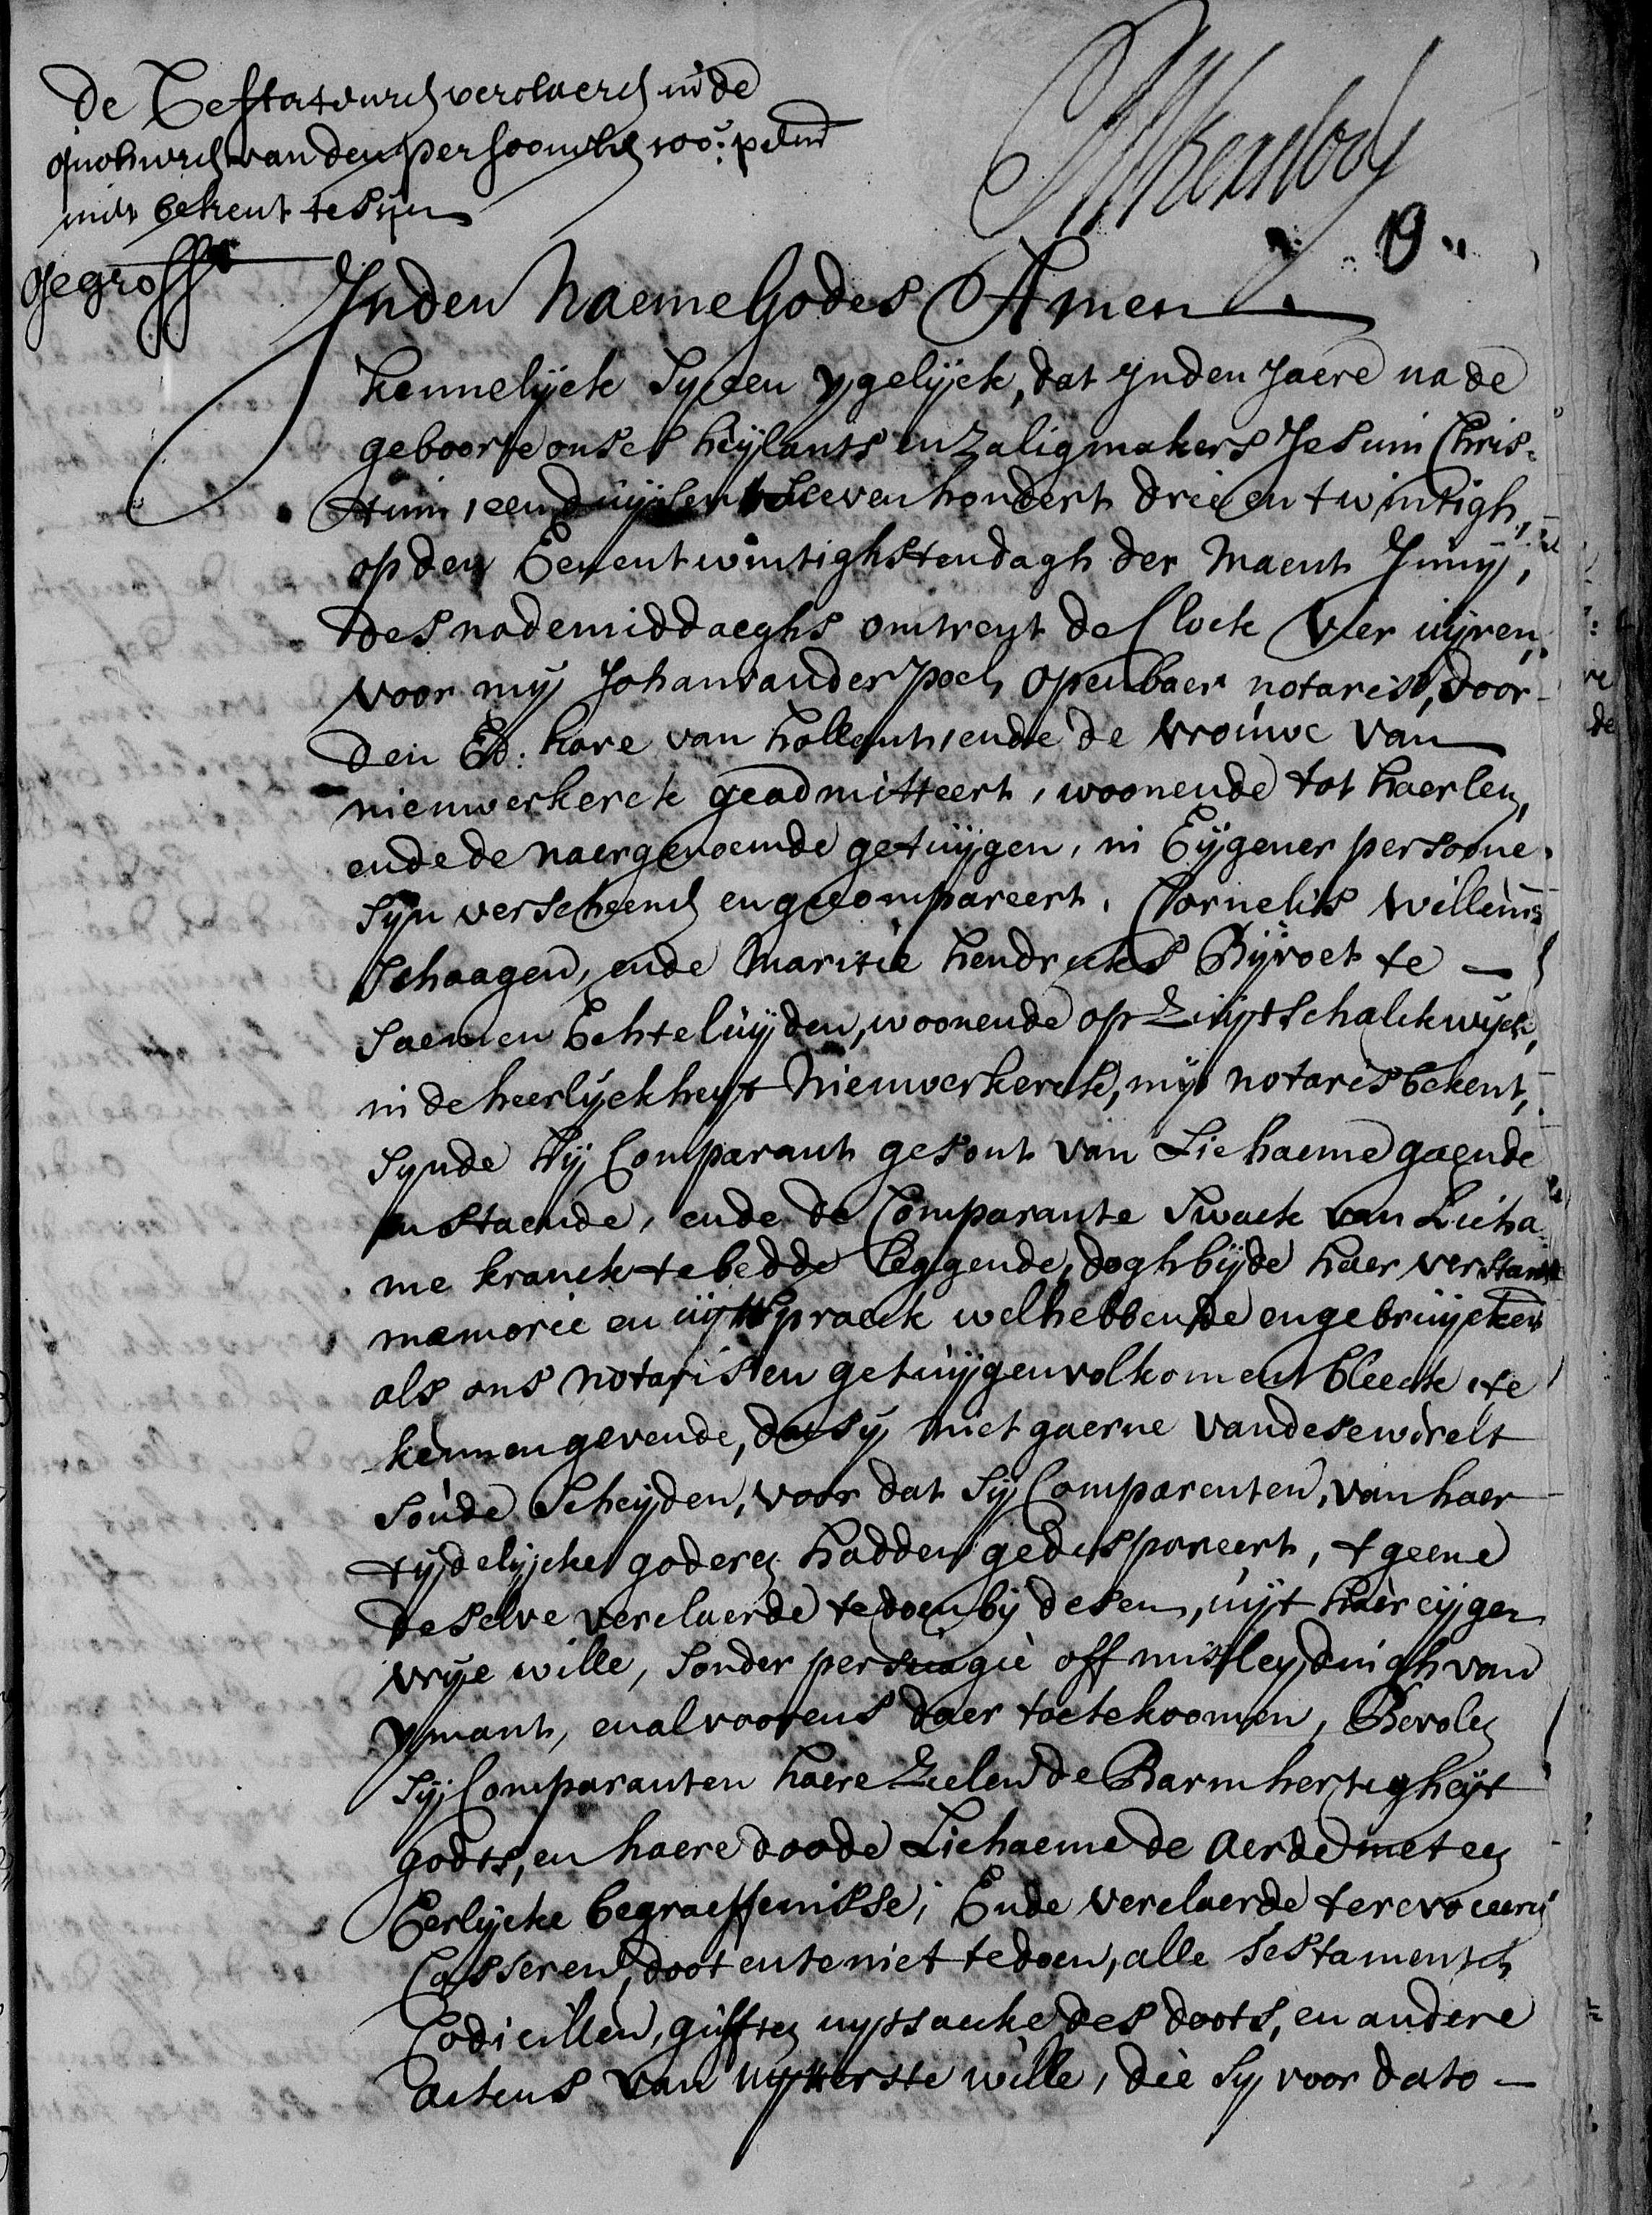 de Testateuren verclaeren in de
quohieren van den persoonelen 100e. pen.
niet bekent te sijn
gegrosst
9
Inden Naeme Godes Amen
Kennelijck Sy een ygelijck, dat Inden Jaere na de
geboorte onses heylants en zaligmakers Jesum Chris-
tum, een duysent seevenhondert drieentwintigh,
op den Eenentwintighsten dagh der maent Junij,
des nademiddaeghs omtrent de Clock vier uijren,
voor mij Johan vander Poel, openbaer notaris, door
den Ed: hove van hollant, ende de Vrouwe van
nieuwerkerck geadmitteert, woonende tot haerlem,
ende de naergenoemde getuijgen, in Eijgener persoone
sijn verscheenen en gecompareert, Cornelis Willemsz
Schaagen, ende Maritie Hendricks Bijvoet te
saemen Echteluijden, woonende op Zuijtschalckwijck,
in de heerlijckheijt Nieuwerkerck, mij notaris bekent,
sijnde hij Comparant gesont van Lichaeme gaende
en staende, ende de Comparante Swack van Licha-
me kranck te bedde leggende, dogh bijde haer verstant
memorie en uijtspraeck wel hebbende en gebruijckende
als ons notaris en getuijgen volkoment bleeck, te
kennen gevende, dat sij niet gaerne van dese werelt
soude Scheijden, voor dat sij Comparenten, van haer
tijdelijcke goderen hadden gedisponeert, t geene
deselve verclaerde te doen bij desen, uijt haer eijgen
vrije wille, sonder persuagie off misleijdingh van
ymant, en alvoorens daer toe te koomen, Bevolen
sij Comparanten haere Zielen de Barmhertigheijt
godts, en haere doode Lichaeme de aerde met een
Eerlijcke begraeffenisse; Ende verclaerde te revoceeren
Casseren, doot en te niet te doen, alle testamenten
Codicillen, giften uijt saecke des doots, en andere
actens van uijtterste wille, die sij voor dato